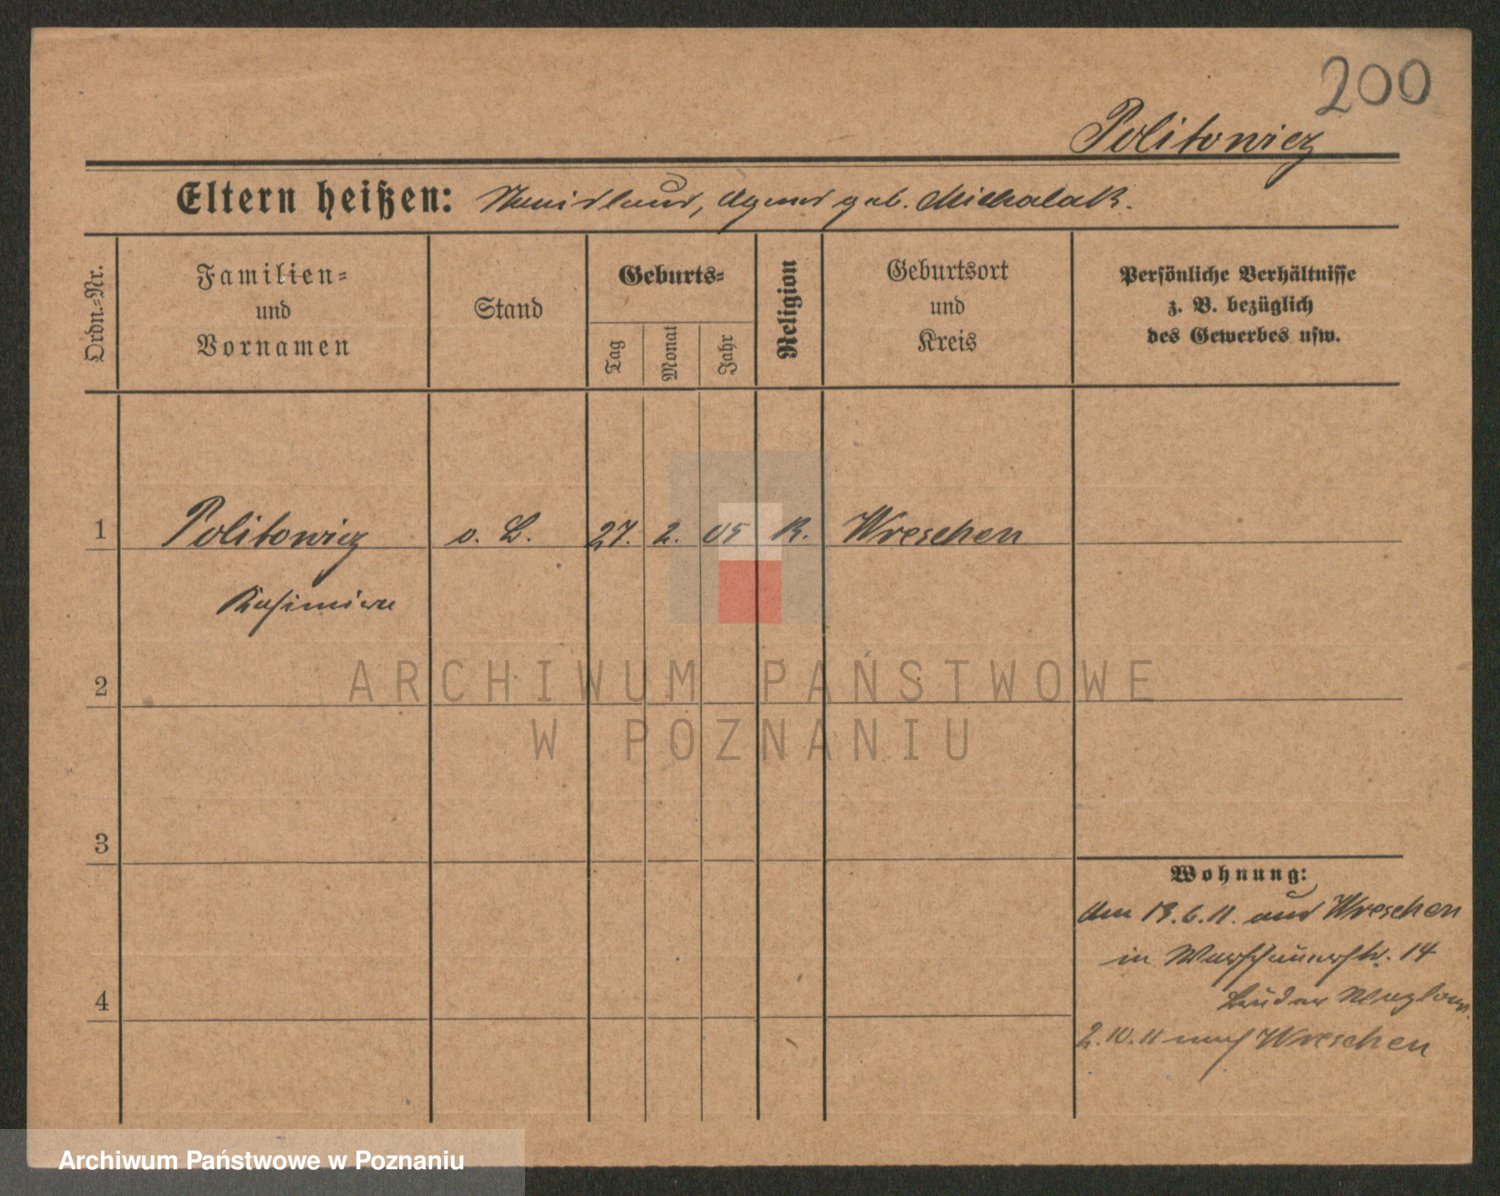 200
Politowicz
Eltern heißen: Stanislaus, Agnes geb. Michalak.
Ordn.-Nr.
Familien-
und
Vornamen
Stand
Geburts-
Tag
Monat
Jahr
Religion
Geburtsort
und
Kreis
Persönliche Verhältnisse
z. B. bezüglich
des Gewerbes usw.
1 Politowicz o. B. 27. 2. 05 K. Wreschen
Kasimira
2
ARCHIWUM PAŃSTWOWE
W POZNANIU
3
Wohnung:
Am 13.6.11. aus Wreschen
in Warschauerstr. 14
4
2.10.11 nach Wreschen
Archiwum Państwowe w Poznaniu